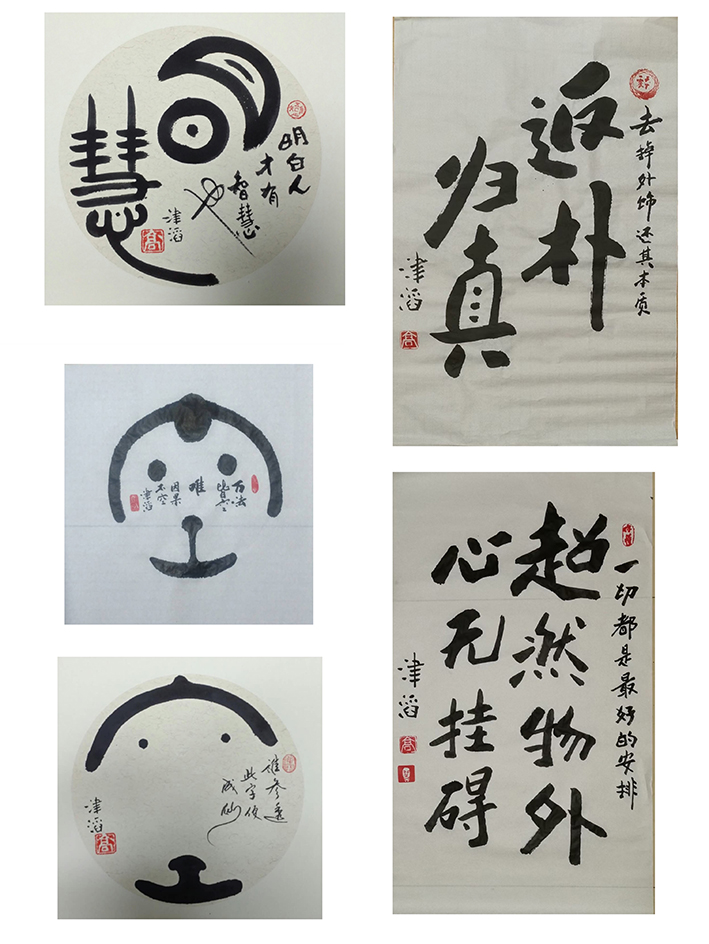 明
慧
明白人
才有
智慧
也
津滔
高
空
万法
皆空
唯
因果
不空
津滔
空
谁参透
此字便
成仙
津滔
高
去掉外饰 还其本质
返朴
归真
津滔
高
一切都是最好的安排
超然物外
心无挂碍
津滔
高